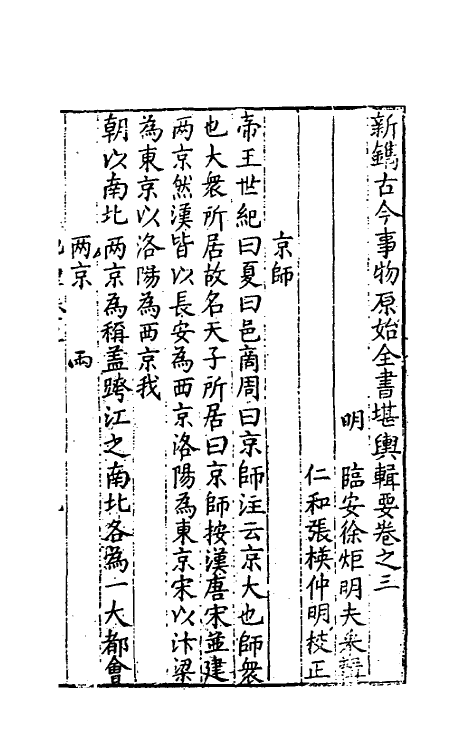 新鐫古今事物原始全書堪輿輯要卷之三
明　臨安徐炬明夫采輯
仁和張楧仲明校正
京師
帝王世紀曰夏曰邑商周曰京師注云京大也師衆
也大衆所居故名天子所居曰京師按漢唐宋並建
两京然漢皆以長安為西京洛陽為東京宋以汴梁
為東京以洛陽為西京我
朝以南北两京為稱蓋跨江之南北各為一大都會
两京　両